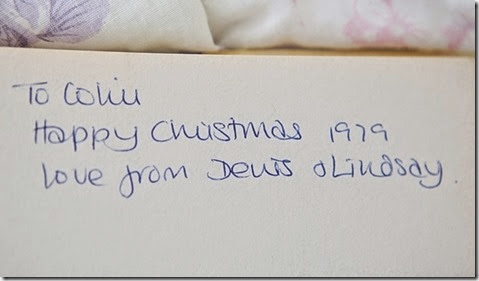 To Colin
Happy Christmas 1979
love from Denis & Lindsay.